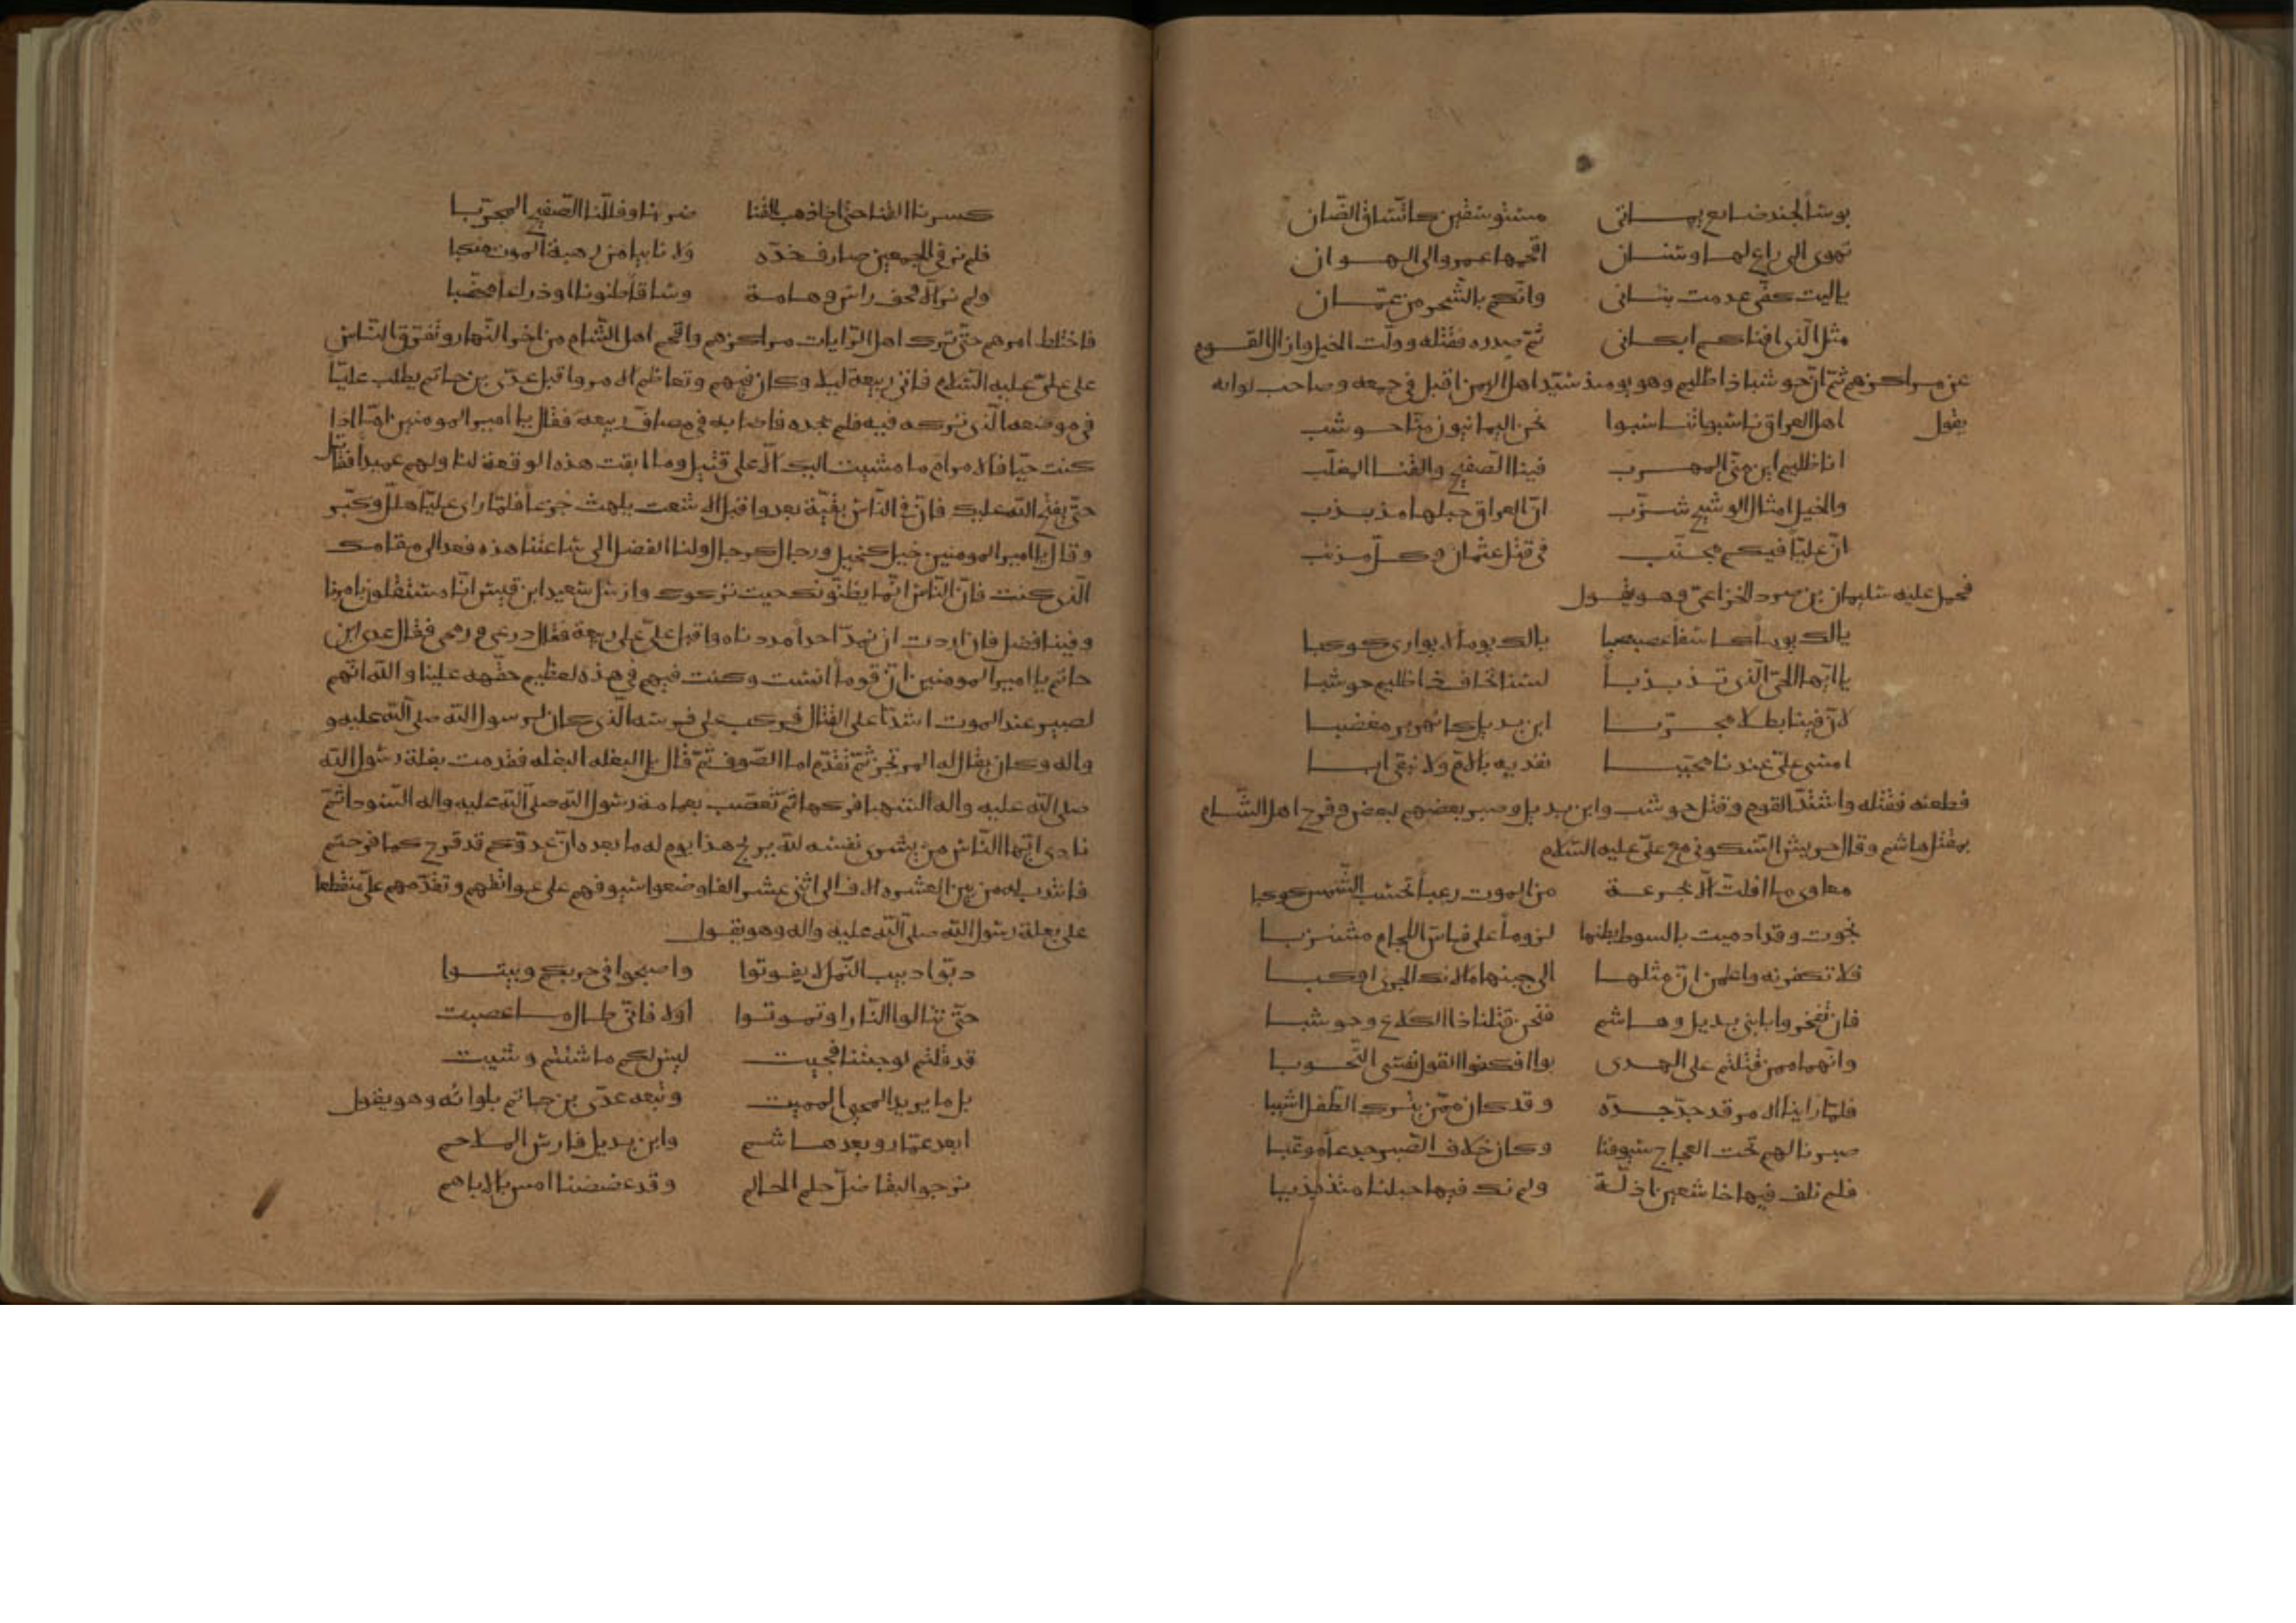 بوسا لجند ضايع يماني مستوسقين كاتساق الضان
تهوى الى راع لها وسنان اقحمها عمرو الى الهوان
ياليت كفى عدمت بنانى وانكم بالشحر من عمان
مثل الذى افناكم ابكانى ثم صدره فقتله وولت الخيل وازال القوم
عن مراكزهم ثم ان حوشبا ذا ظليم وهو يومئذ سيد اهل اليمن اقبل فى جمعه وصاحب لوائه
يقول اهل العراق ناسبوا انتسبوا نحن اليمانيون منا حوشب
انا ظليم اين منى المهرب فينا الصفيح والقنا المغلب
والخيل امثال الوشيج شزب ان العراق حبلها مذبذب
ان عليا فيكم محبب فى قتل عثمان وكل مذنب
فحمل عليه سليمان بن صرد الخزاعى وهو يقول
يالك يوما كاسفا عصبصبا يالك يوما لا يوارى كوكبا
يا ايها الحى الذى تذبذبا لسنا نخاف ذا ظليم حوشبا
لان فينا بطلا مجربا ابن بديل كالهزبر مغضبا
امسى على عندنا محببا نفديه بالام ولا نبقى ابا
فطعنه فقتله واشتد القوم وقتل حوشب وابن بديل وصبر بعضهم لبعض وفرح اهل الشام
بمقتل هاشم وقال حريش السكونى مع على عليه السلام
معاوى ما افلت الا بجرعة من الموت رعبا تحسب الشمس كوكبا
نجوت وقد ادميت بالسوط بطنها لزوما على فاس اللجام مشذبا
فلا تكفرنه واعلمن ان مثلها الى جنبها ما لاندك الجرى اوكبا
فان تفخروا بابنى بديل وهاشم فنحن قتلنا ذا الكلاع وحوشبا
وانهما ممن قتلتم على الهدى بواا فكفوا القول ننسى التحوبا
فلما راينا الامر قد جد جده وقد كان مما يترك الطفل اشيبا
صبرنا لهم تحت العجاج سيوفنا وكان خلاف الصبر جدعا موعبا
فلم نلف فيها خاشعين اذلة ولم نك فيها حبلنا متذبذبا
كسرنا القنا حتى اذا ذهب القنا ضربنا وفللنا الصفيح المجربا
فلم نر فى الجمعين صادف خده ولا ثانيا من رهبة الموت منكبا
ولم نر الا قحف راس وهامة وساقا طنونا او ذراعا مخضبا
فاختلط امرهم حتى ترك اهل الرايات مراكزهم واقحم اهل الشام من اخر النهار وتفرق الناس
على على عليه السلام فاتى ربيعة ليلا وكان فيهم وتعاظم الامر واقبل عدى بن حاتم يطلب عليا
فى موضعه الذى تركه فيه فلم يجده فاصابه فى مصاف ربيعة فقال يا امير المومنين اما اذا
كنت حيا فالامر امم ما مشيت اليك الا على قتيل وما ابقت هذه الوقعة لنا ولهم عميدا فقاتل
حتى يفتح الله عليك فان فى الناس بقية بعد واقبل الاشعث يلهث جزعا فلما راى عليا هلل وكبر
وقال يا امير المومنين خيل كخيل ورجال كرجال ولنا الفضل الى ساعتنا هذه فعد الى مقامك
الذى كنت فان الناس انما يظنونك حيث تركوك وارسل سعيد ابن قيس انا مشتغلون بامرنا
وفينا فضل فان اردت ان نمد احدا مددناه واقبل على على ربيعة فقال درعى ورمحى فقال عدى ابن
حاتم يا امير المومنين ان قوما انست وكنت فيهم فى هذه لعظيم حقهم علينا والله انهم
لصبر عند الموت اشدا على القتال فركب على فرسه الذى كان لرسول الله صلى الله عليه و
واله وكان يقال له المرتجز ثم تقدم امام الصفوف ثم قال بل البغله البغله فقدمت بغلة رسول الله
صلى الله عليه واله الشهبا فركبها ثم تعصب بعمامة رسول الله صلى الله عليه واله السوداثم
نادى ايها الناس من يشرى نفسه لله يربح هذا يوم له ما بعده ان عدوكم قد قرح كما قرحتم
فانتدب له من بين العشره الاف الى اثنى عشر الفا وضعوا سيوفهم على عواتقهم وتقدمهم على منقطعا
على بغلة رسول الله صلى الله عليه واله وهو يقول
دبوا دبيب النمل لا يفوتوا واصبحوا فى حربكم وبيتوا
حتى تنالوا الثار او تموتوا اولا فانى طال ما عصيت
قد قلتم لو جئتنا فجيت ليس لكم ما شئتم وشيت
بل ما يريد المحيى المميت وتبعه عدى بن حاتم بلوائه وهو يقول
ابعد عمار وبعد هاشم وابن بديل فارس الملاحم
نرجو البقا ضل حلم الحالم وقد عضضنا امس بالاباهم